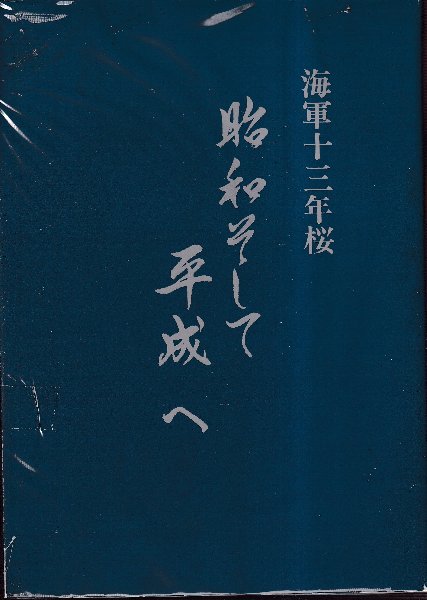 海軍十三年桜
昭和そして
平成へ